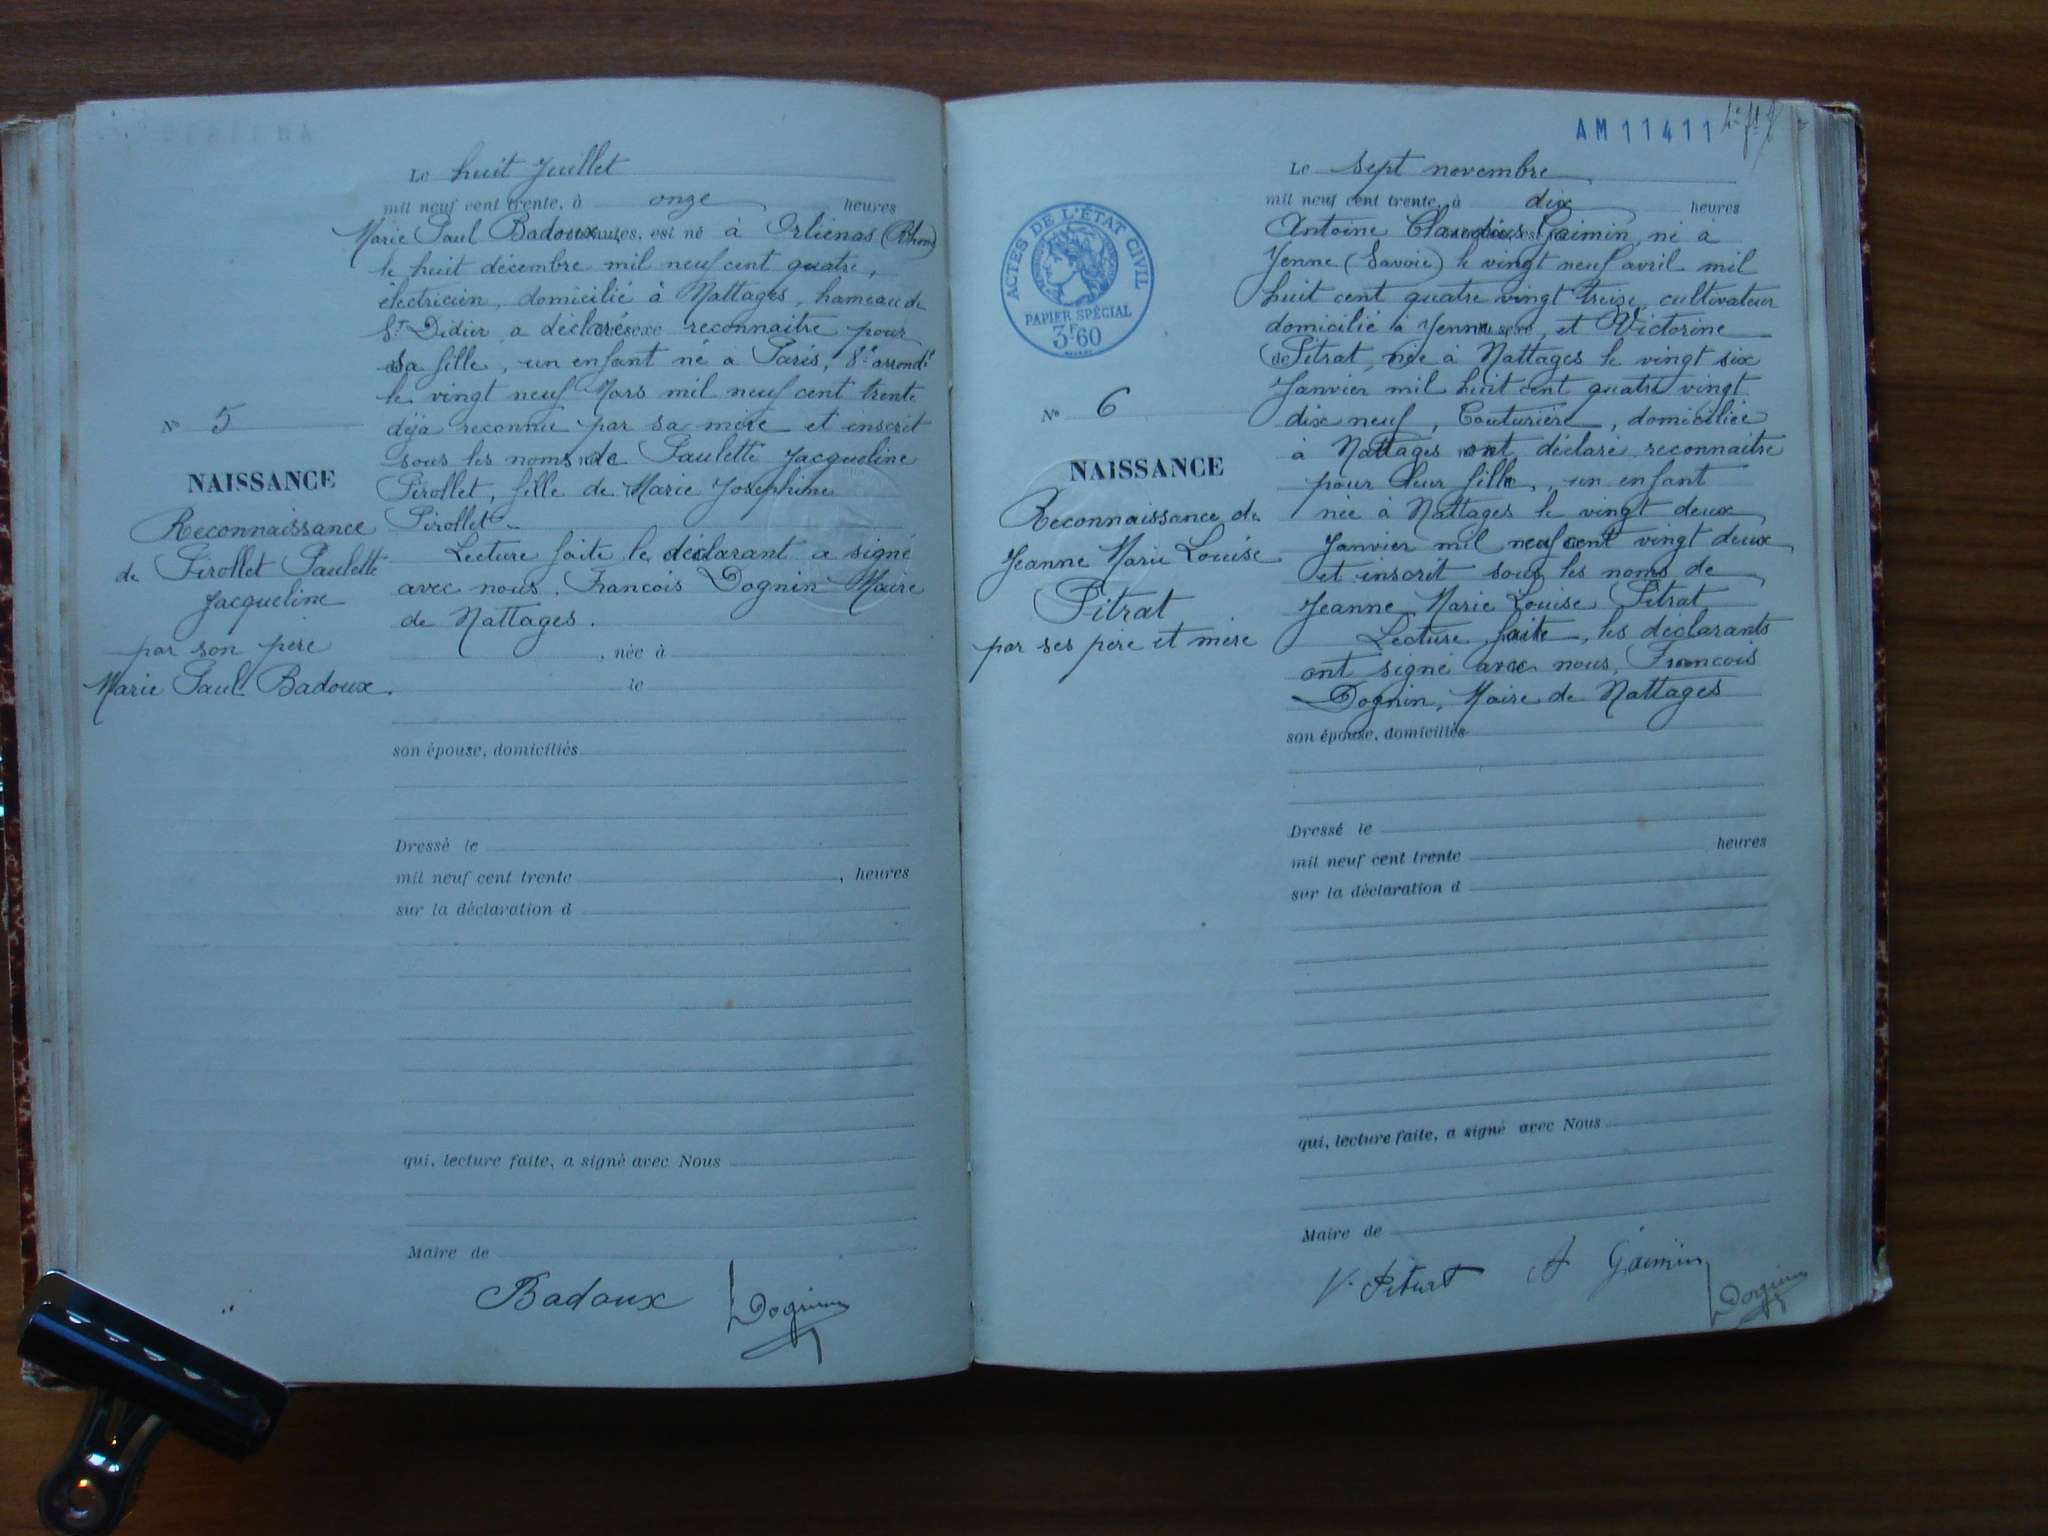 Le huit Juillet
mil neuf cent trente, à onze heures
Marie Paul Badoux minutes, est né à Orliénas (Rhône)
le huit décembre mil neuf cent quatre,
électricien, domicilié à Nattages, hameau de
St Didier a déclaré sexe reconnaitre pour
sa fille, un enfant né à Paris, 8e arrondt
le vingt neuf Mars mil neuf cent trente
déja reconnu par sa mère et inscrit
sous les noms de Paulette Jacqueline
Pirollet, fille de Marie Joséphine
Pirollet.
Lecture faite le déclarant a signé
avec nous, François Dognin Maire
de Nattages.
, née à
le
son épouse, domiciliés
Dressé le
mil neuf cent trente , heures
sur la déclaration d
qui, lecture faite, a signé avec Nous
Maire de
Badoux Dognin
No 5
NAISSANCE
Reconnaissance
de Pirollet Paulette
Jacqueline
par son père
Marie Paul Badoux.
AM 11411
Le sept novembre
mil neuf cent trente, à dix heures
Antoine Claudius Gaimin, né à
Yenne (Savoie) le vingt neuf avril mil
huit cent quatre vingt treize, cultivateur
domicilié à Yenne, et Victorine
Pitrat, née à Nattages le vingt six
Janvier mil huit cent quatre vingt
dix neuf, Couturière, domiciliée
à Nattages ont déclaré reconnaitre
pour leur fille, un enfant
née à Nattages le vingt deux
Janvier mil neuf cent vingt deux,
et inscrit sous les noms de
Jeanne Marie Louise Pitrat
Lecture faite, les déclarants
ont signé avec nous, François
Dognin, Maire de Nattages
son épouse, domiciliés
Dressé le
mil neuf cent trente heures
sur la déclaration d
qui, lecture faite, a signé avec Nous
Maire de
V. Pitrat A Gaimin Dognin
ACTES DE L'ÉTAT CIVIL
PAPIER SPÉCIAL
3F60
No 6
NAISSANCE
Reconnaissance de
Jeanne Marie Louise
Pitrat
par ses père et mère